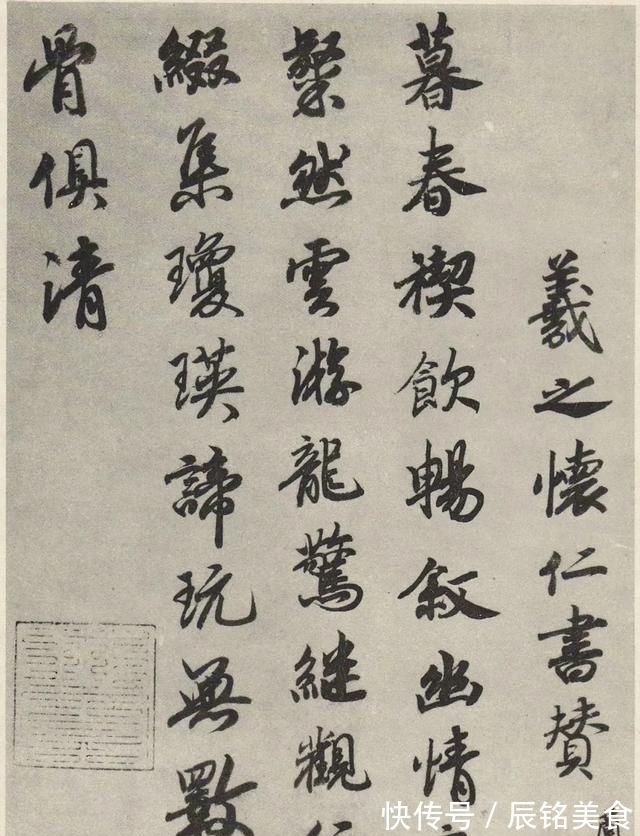 羲之懷仁書贊
暮春禊飲暢敘幽情
粲然雲游龍驚繼觀
綴集瓊瑛諦玩無數
骨俱清
快传号 / 辰铭美食